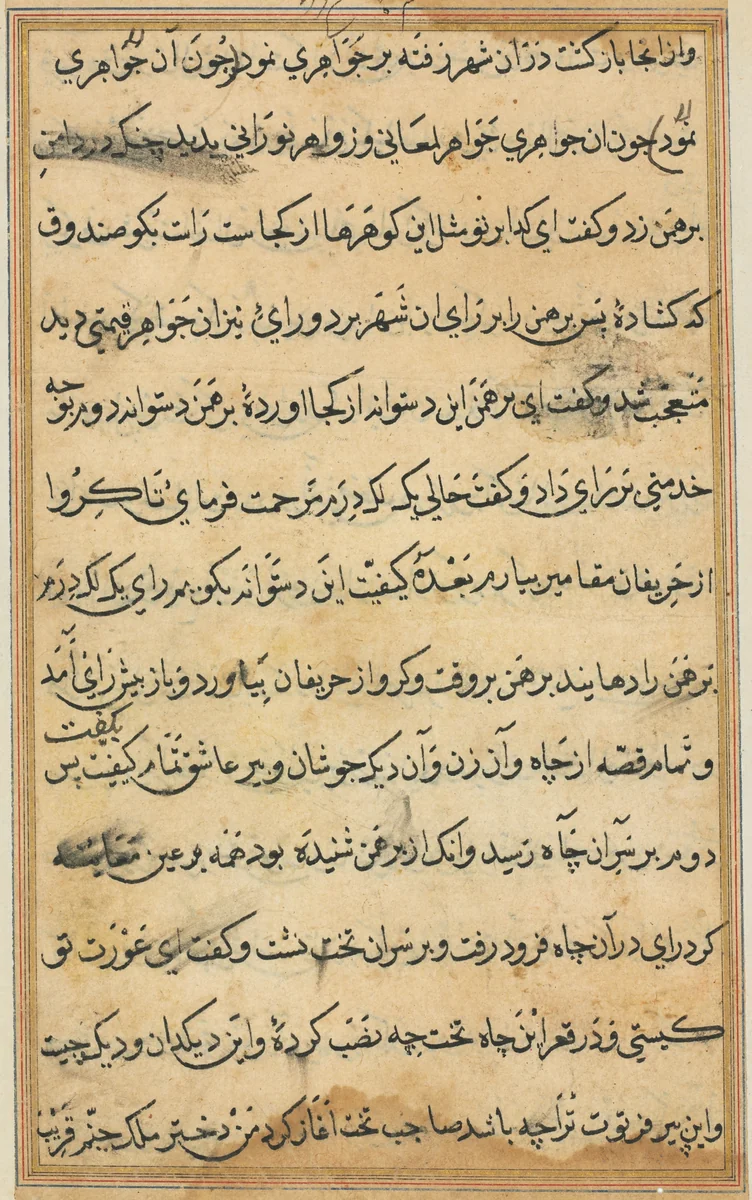 وازانجا باز كشت در ان شهر رفته بر جواهري نمود چون آن جواهري
نمود جون ان جواهري جواهر لمعاني وزواهر نوراني بديد چنك در دامن
برهمن زد وكفت اي كدا بر تو مثل اين كوهرها از كجاست راست بكو صندوق
كه كشادۀ پس برهمن را بر راي ان شهر برد وراي نيز ان جواهر قيمتي ديد
متعجب شد وكفت اي برهمن اين دستوانه از كجا اوردۀ برهمن دستوانه دوم بوجه
خدمتي بر راي داد وكفت حالي يك لك درم مرحمت فرماي تا كروا
از حريفان مقامير بيارم بعده كيفيت اين دستوانه بكويم راي يك لك درم
برهمن را دهانيد برهمن بروقت وكرو از حريفان بياورد وباز پيش راي آمد
وتمام قصه از چاه وآن زن وآن ديك جوشان وپير عاشق تمام كيفيت بكفت پس
دوم بر سر ان چاه رسيد وانك از برهمن شنيده بود همه بر عين معاينه
كرد راي در آن چاه فرود رفت وبر سر ان تخت نشت وكفت اي عورت تو
كيستي ودر قعر اين چاه تخت چه نصب كردۀ واين ديكدان وديك چيت
واين پير فرتوت ترا چه باشد صاحب تخت آغاز كرد من دختر ملك جنم قريب